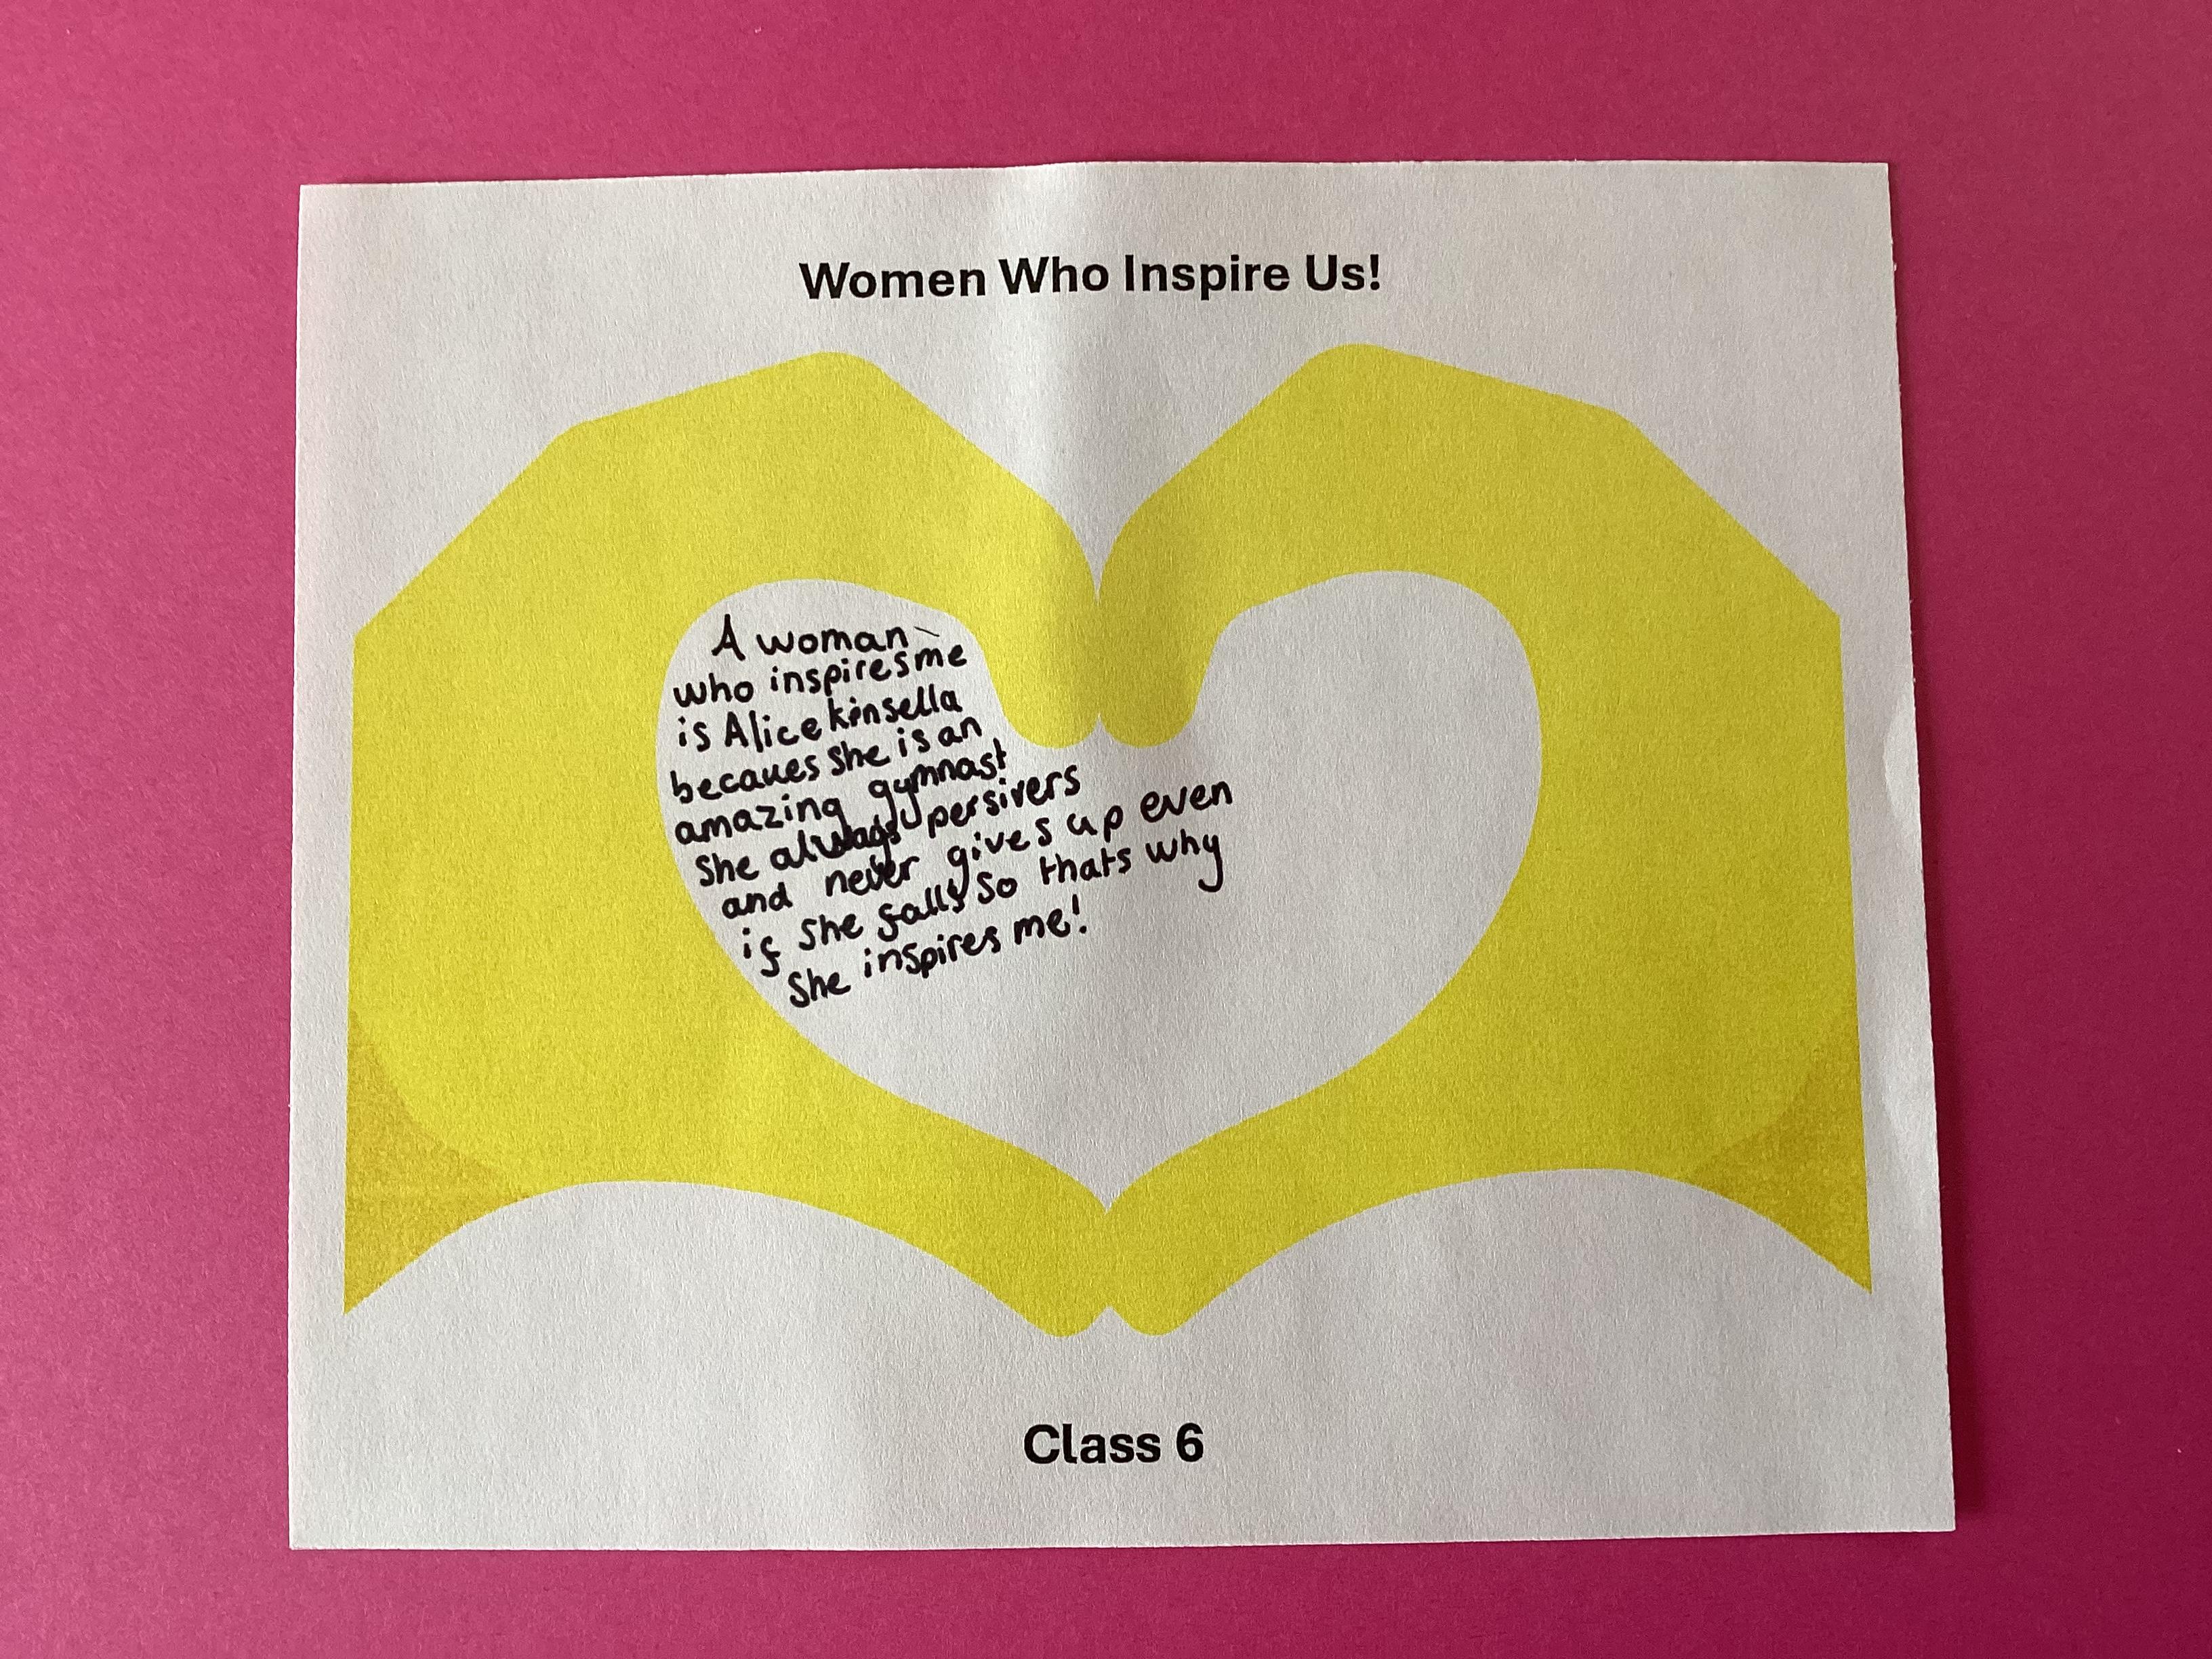 Women Who Inspire Us!
A woman
who inspires me
is Alice kinsella
becaues she is an
amazing gymnast
She always persivers
and never gives up even
if she falls so thats why
She inspires me!
Class 6